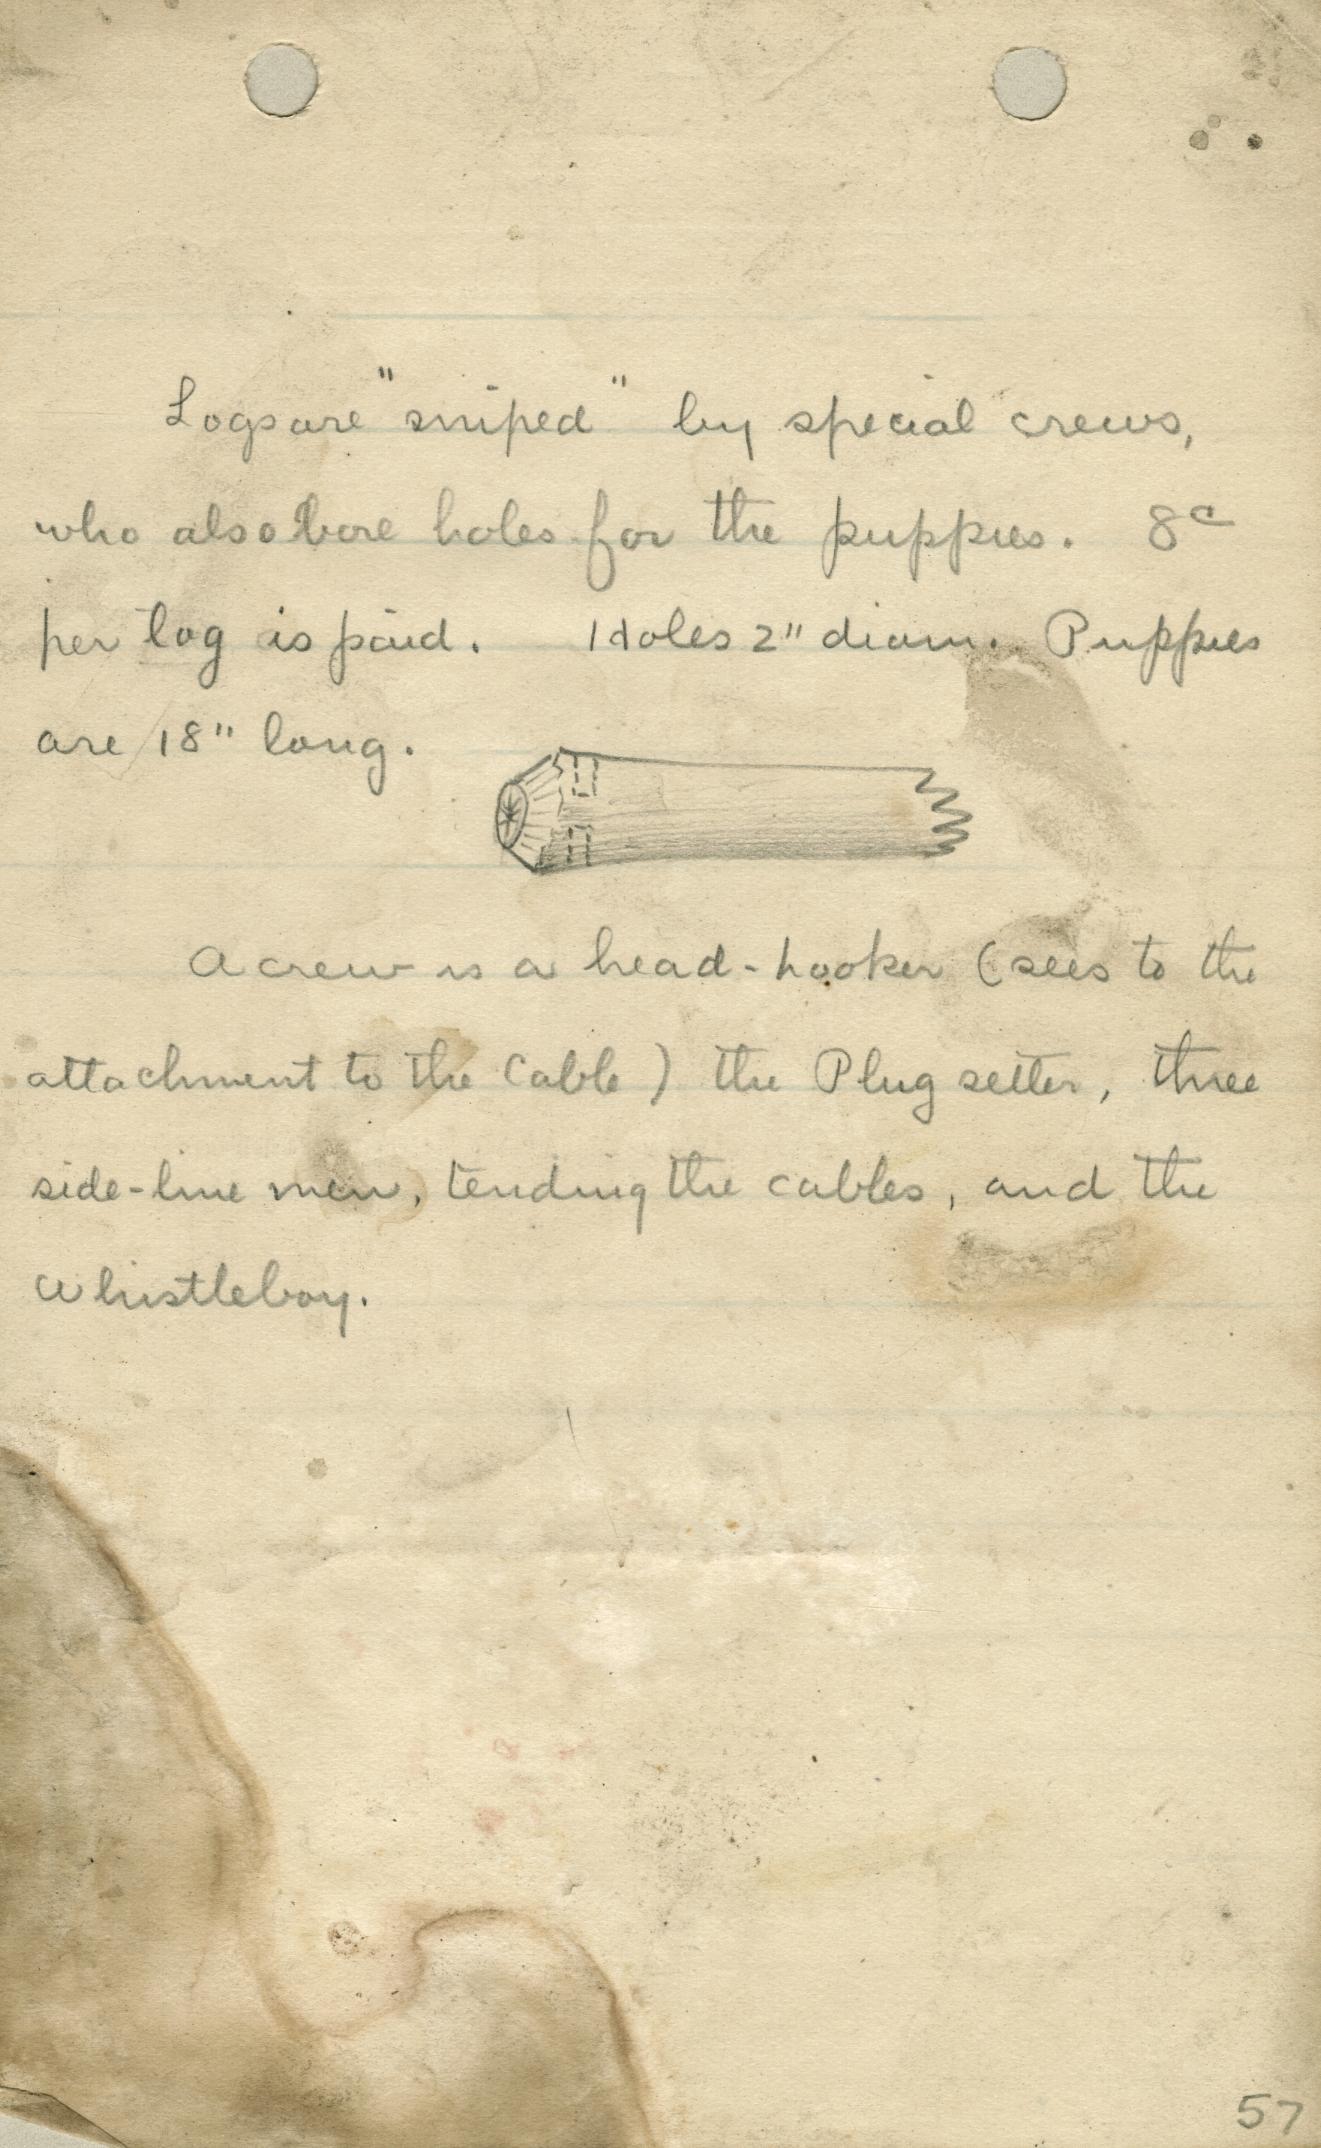 Logs are "sniped" by special crews,
who also bore holes for the puppies. 8c
per log is paid. Holes 2" diam. Puppies
are 18" long.
A crew is a head-hooker (sees to the
attachment to the cable) the Plug setter, three
side-line men, tending the cables, and the
whistleboy.
57